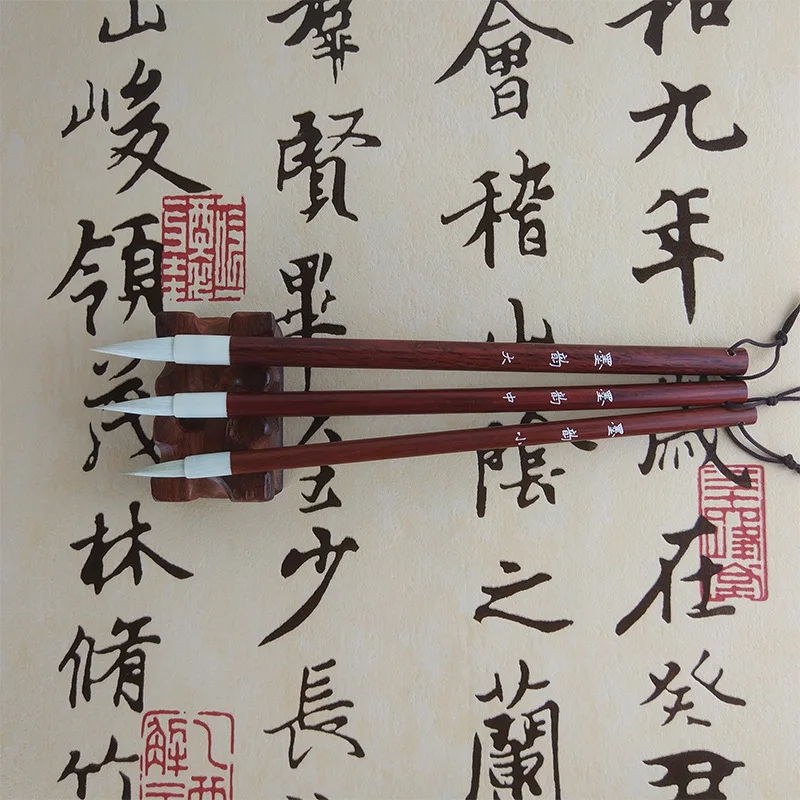 和九年歲在癸丑
會稽山陰之蘭
羣賢畢至少長
山峻領茂林脩竹
墨韵大
墨韵中
墨韵小